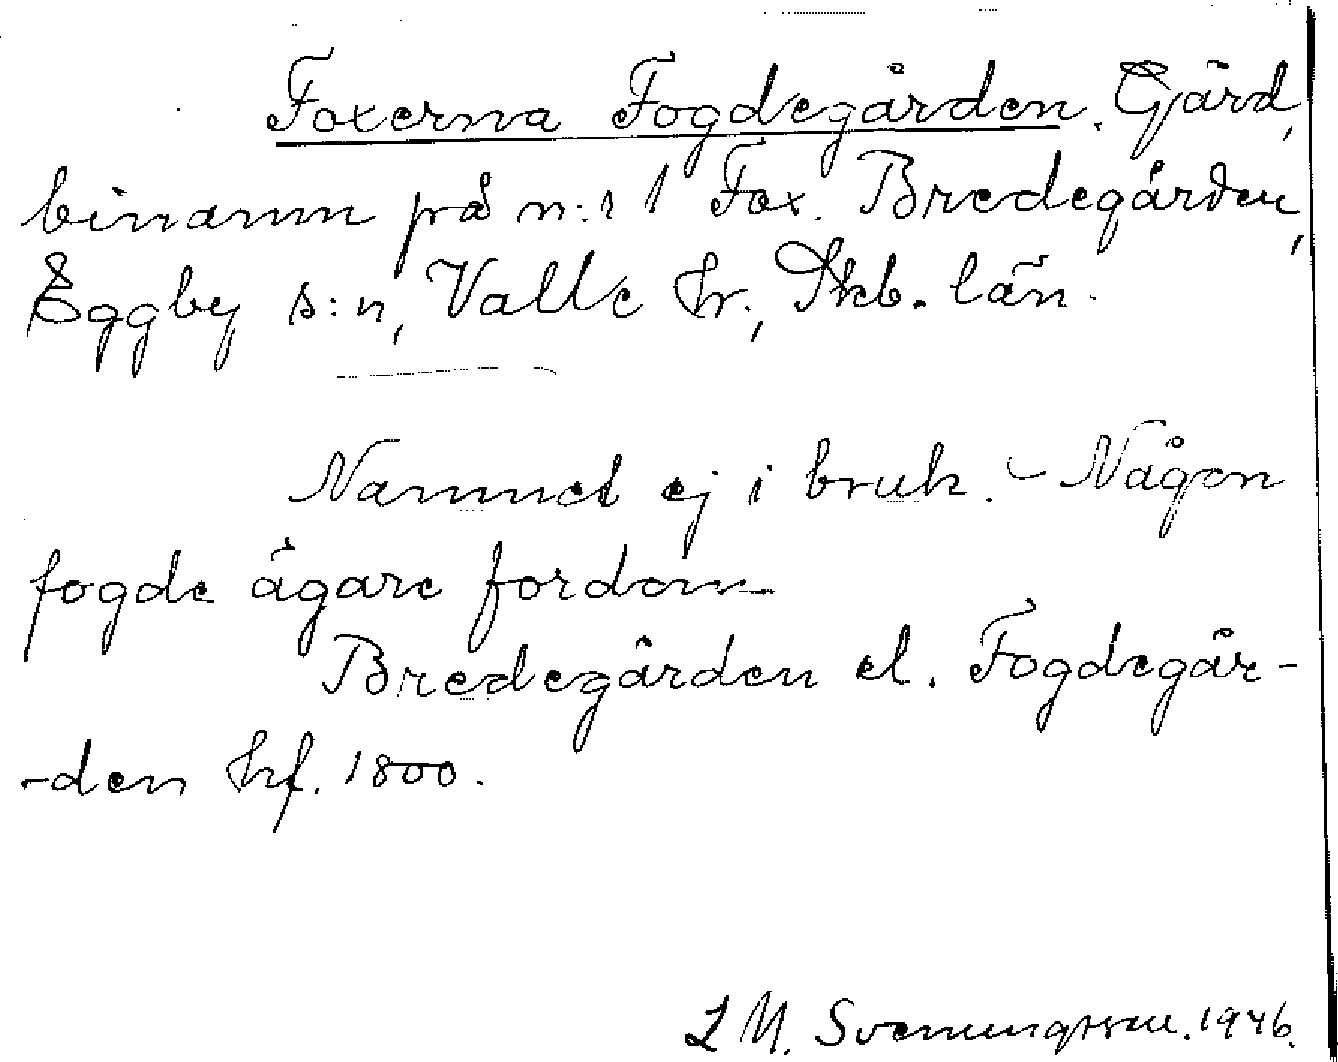 Foxerna Fogdegården. Gård,
binamn på n:r 1 Fox. Bredegården,
Eggby s:n, Valle hr., Skb. län.
Namnet ej i bruk. – Någon
fogde ägare fordom
Bredegården el. Fogdegår-
-den hrf. 1800.
L M. Svenungsson. 1946.